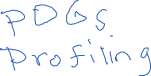 PDGS
Profiling